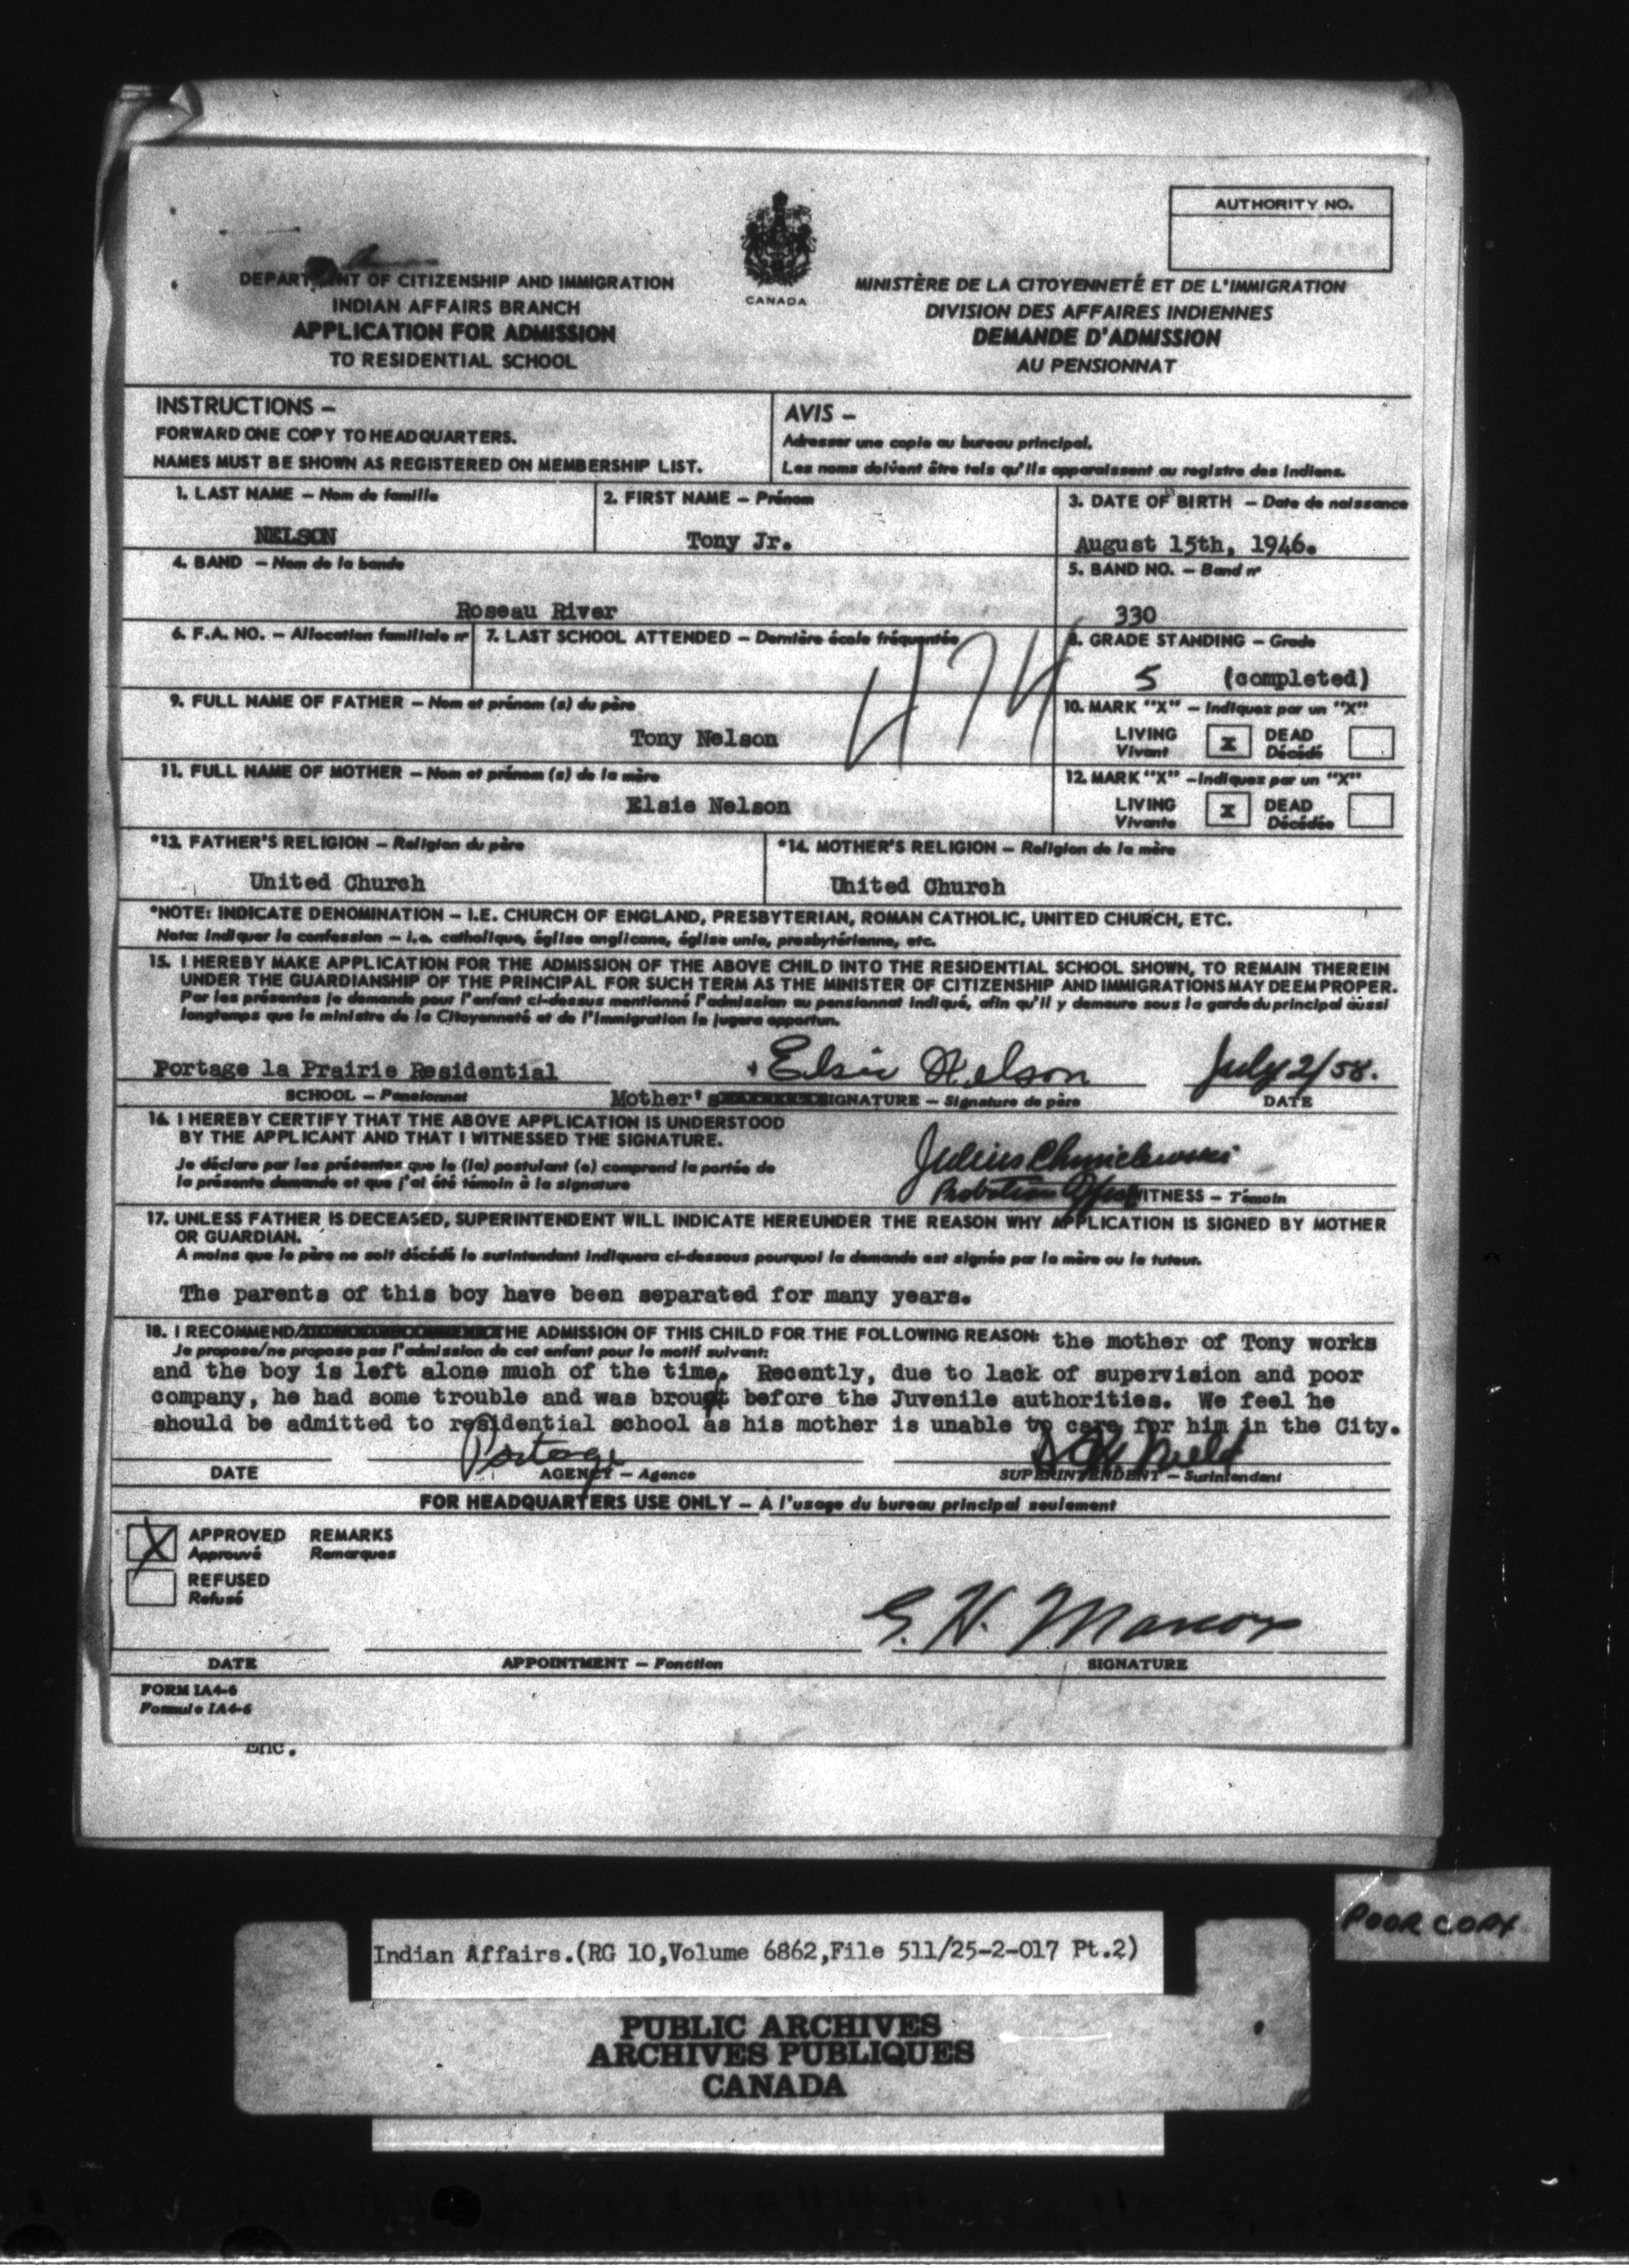 AUTHORITY NO.
DEPARTMENT OF CITIZENSHIP AND IMMIGRATION
INDIAN AFFAIRS BRANCH
APPLICATION FOR ADMISSION
TO RESIDENTIAL SCHOOL
CANADA
MINISTÈRE DE LA CITOYENNETÉ ET DE L'IMMIGRATION
DIVISION DES AFFAIRES INDIENNES
DEMANDE D'ADMISSION
AU PENSIONNAT
INSTRUCTIONS –
FORWARD ONE COPY TO HEADQUARTERS.
NAMES MUST BE SHOWN AS REGISTERED ON MEMBERSHIP LIST.
AVIS –
Adresser une copie au bureau principal.
Les noms doivent être tels qu'ils apparaissent au registre des Indiens.
1. LAST NAME – Nom de famille
NELSON
2. FIRST NAME – Prénom
Tony Jr.
3. DATE OF BIRTH – Date de naissance
August 15th, 1946.
4. BAND – Nom de la bande
Roseau River
5. BAND NO. – Band nº
330
6. F.A. NO. – Allocation familiale nº
7. LAST SCHOOL ATTENDED – Dernière école fréquentée
474
8. GRADE STANDING – Grade
5 (completed)
9. FULL NAME OF FATHER – Nom et prénom (s) du père
Tony Nelson
10. MARK "X" – Indiquez par un "X"
LIVING x DEAD
Vivant Décédé
11. FULL NAME OF MOTHER – Nom et prénom (s) de la mère
Elsie Nelson
12. MARK "X" – Indiquez par un "X"
LIVING x DEAD
Vivante Décédée
*13. FATHER'S RELIGION – Religion du père
United Church
*14. MOTHER'S RELIGION – Religion de la mère
United Church
*NOTE: INDICATE DENOMINATION – I.E. CHURCH OF ENGLAND, PRESBYTERIAN, ROMAN CATHOLIC, UNITED CHURCH, ETC.
Nota: Indiquer la confession – i.e. catholique, église anglicane, église unie, presbytérienne, etc.
15. I HEREBY MAKE APPLICATION FOR THE ADMISSION OF THE ABOVE CHILD INTO THE RESIDENTIAL SCHOOL SHOWN, TO REMAIN THEREIN
UNDER THE GUARDIANSHIP OF THE PRINCIPAL FOR SUCH TERM AS THE MINISTER OF CITIZENSHIP AND IMMIGRATIONS MAY DEEM PROPER.
Par les présentes je demande pour l'enfant ci-dessus mentionné l'admission au pensionnat indiqué, afin qu'il y demeure sous la garde du principal aussi
longtemps que le ministre de la Citoyenneté et de l'Immigration le jugera opportun.
Portage la Prairie Residential Elsie Nelson July 2/58.
SCHOOL – Pensionnat Mother's SIGNATURE – Signature de père DATE
16. I HEREBY CERTIFY THAT THE ABOVE APPLICATION IS UNDERSTOOD
BY THE APPLICANT AND THAT I WITNESSED THE SIGNATURE.
Je déclare par les présentes que le (la) postulant (e) comprend la portée de
la présente demande et que j'ai été témoin à la signature
Julius Chmielewski
Probation Officer WITNESS – Témoin
17. UNLESS FATHER IS DECEASED, SUPERINTENDENT WILL INDICATE HEREUNDER THE REASON WHY APPLICATION IS SIGNED BY MOTHER
OR GUARDIAN.
A moins que le père ne soit décédé le surintendant indiquera ci-dessous pourquoi la demande est signée par la mère ou le tuteur.
The parents of this boy have been separated for many years.
18. I RECOMMEND/ THE ADMISSION OF THIS CHILD FOR THE FOLLOWING REASON: the mother of Tony works
Je propose/ne propose pas l'admission de cet enfant pour le motif suivant:
and the boy is left alone much of the time. Recently, due to lack of supervision and poor
company, he had some trouble and was brougt before the Juvenile authorities. We feel he
should be admitted to residential school as his mother is unable to care for him in the City.
Portage
DATE AGENCY – Agence SUPERINTENDENT – Surintendant
FOR HEADQUARTERS USE ONLY – A l'usage du bureau principal seulement
X APPROVED REMARKS
Approuvé Remarques
REFUSED
Refusé
DATE APPOINTMENT – Fonction SIGNATURE
FORM IA4-6
Formule IA4-6
Enc.
POOR COPY
Indian Affairs.(RG 10,Volume 6862,File 511/25-2-017 Pt.2)
PUBLIC ARCHIVES
ARCHIVES PUBLIQUES
CANADA